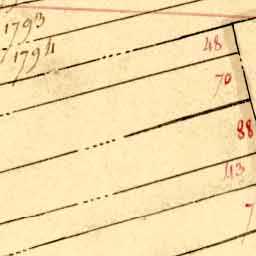 1793
1794
48
70
88
43
7